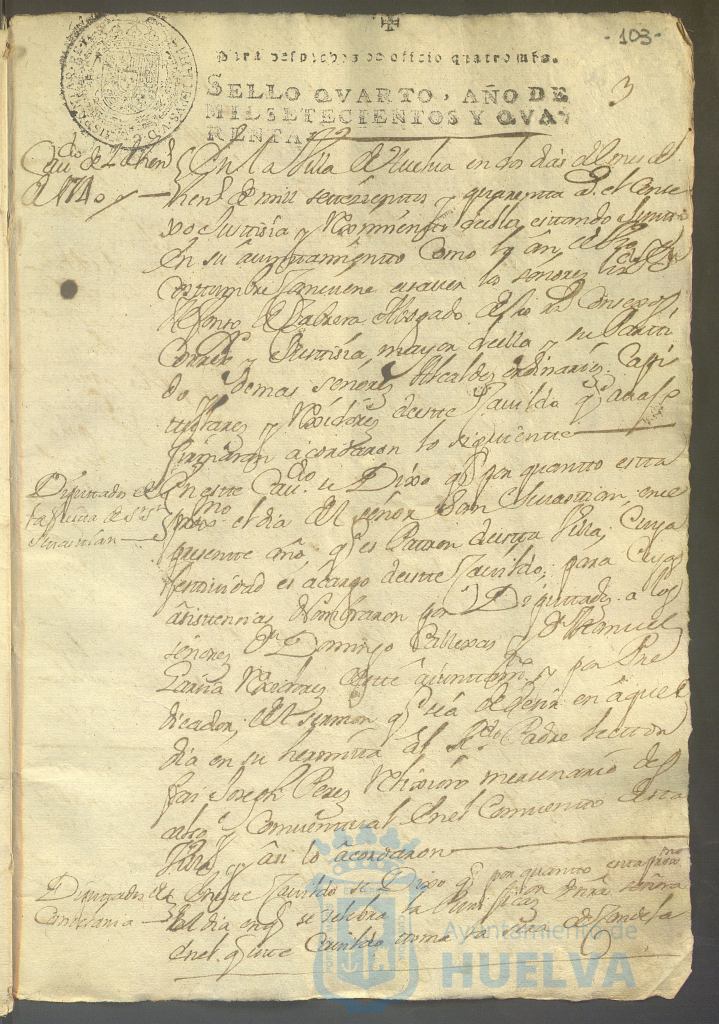 -103-
Para despachos de officio quatro mrs.
3
SELLO QVARTO, AÑO DE
MIL SETECIENTOS Y QVA-
RENTA.
Cavdo de 2 de hen.
de 1740
En la Villa de Huelva en dos dias del mes de
hen. de mil setezientos y quarenta a. el Conce
xo Justisia y Reximiento della estando juntos
En su ayuntamiento Como lo an de
costumbre combiene a saver lo señores
Alfonso de Cabrera Abogado de los R. Consexos
Corregr. y Justisia mayor della y su Parti
do y demas señores Alcaldes ordinarios Capi
tulares y Rexidores deste Cavildo q. avajo
firmaran acordaron lo siguiente
Diputados de
la fiesta de Sn
Sevastian
En este Cavdo. se Dixo q. por quanto esta
proxmo el dia del señor San Sevastian, en el
presente año, q. es Patron desta Villa, Cuya
festividad es a cargo deste Cavildo, para Cuyas
asistencias Nombraron por Diputados a los
señores Dn Domingo y Dn Manuel
Garsia Rexidores deste ayuntamto. y por Pre
dicador, del sermon q. se a de desir en aquel
dia en su hermita al R.do Padre lector
frai Joseph Perez Relixioso mercenario des
calso y Conventual en el Convento desta
Villa y asi lo acordaron
Diputados de la
Candelaria
En este Cavildo se Dixo q. por quanto esta proxmo
el dia en q. se selebra la Purificasion de nra señora
en el q. este Cavildo toma la sera de Candela
Ayuntamiento de
HUELVA